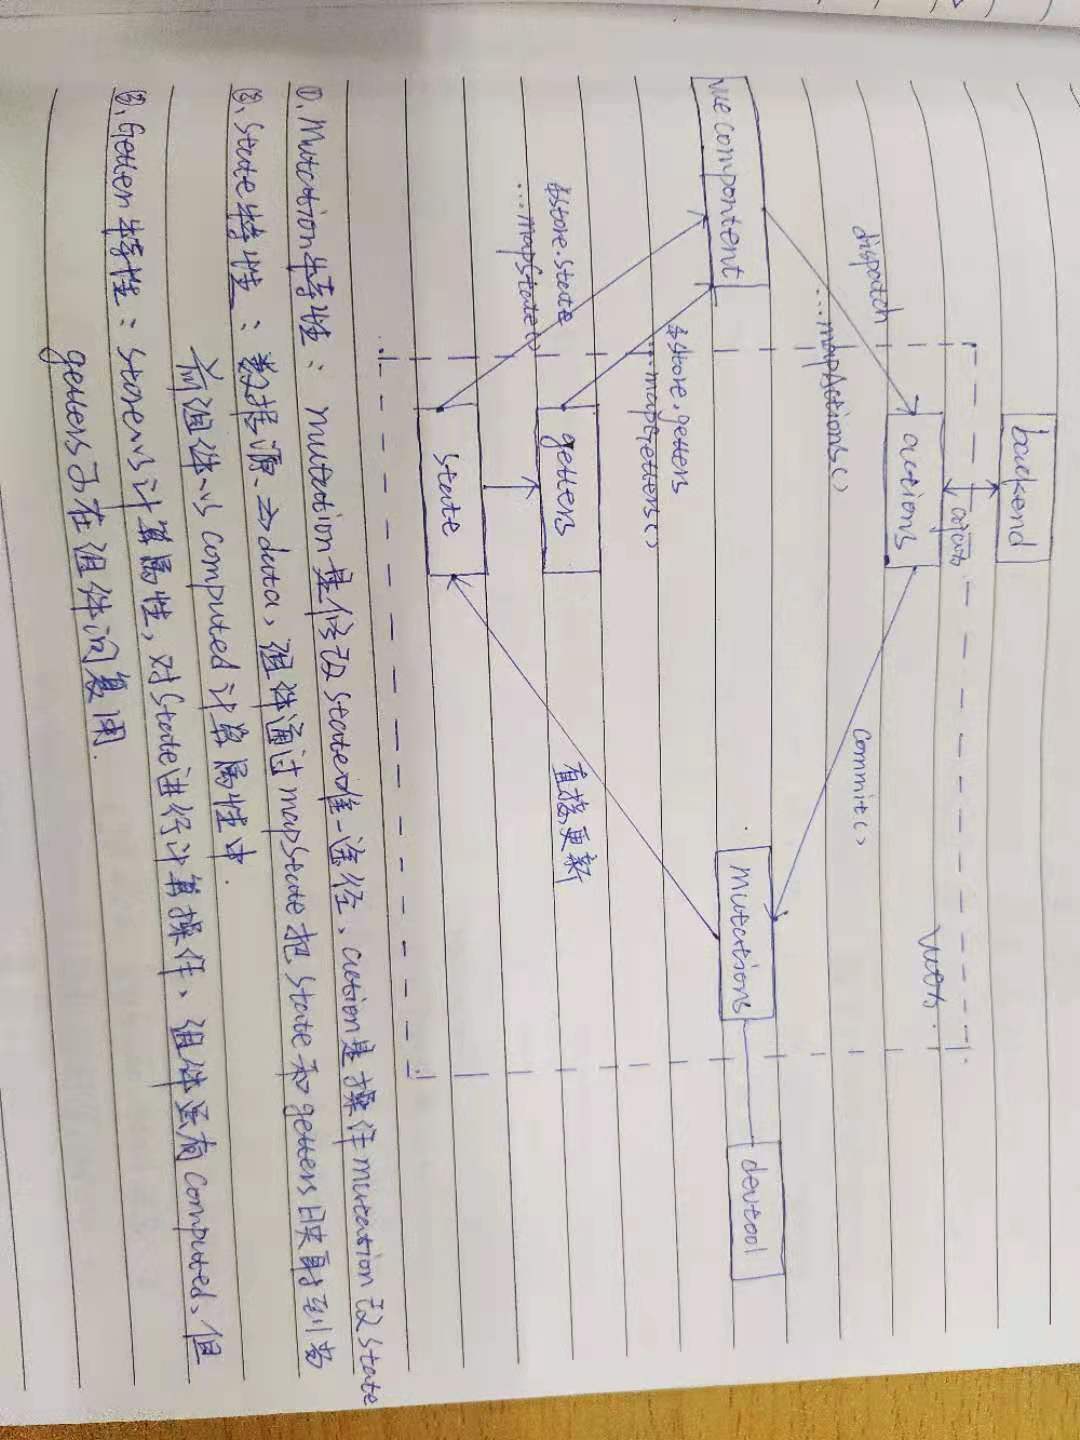 backend
vuex
actions
dispatch
...mapActions()
commit()
vue compontent
mutations
devtool
$store.getters
...mapGetters()
$store.state
...mapState()
getters
直接更新
state
①. Mutation特性： mutation是修改state唯一途径、action是操作mutation改state
②. State特性： 数据源、data，组件通过mapState把state和getters映射到当
前组件的computed计算属性中.
③. Getter特性：store的计算属性，对state进行计算操作、组件虽有computed、但
getters可在组件间复用.